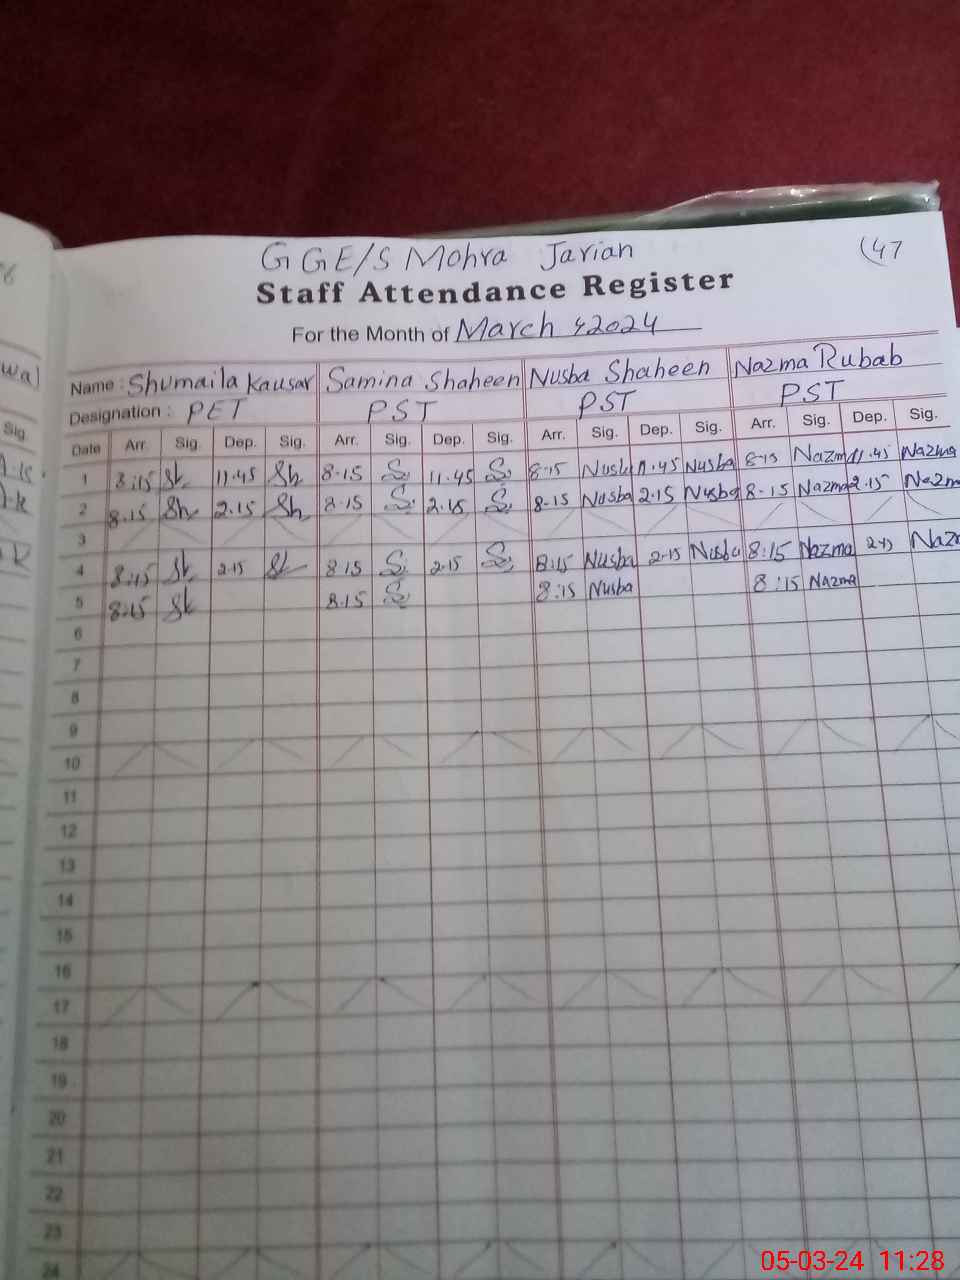 G GE/S Mohra Jarian (47
Staff Attendance Register
For the Month of March , 2024
Name : Shumaila Kausar Samina Shaheen Nusba Shaheen Nazma Rubab
Designation : PET PST PST PST
Date Arr. Sig. Dep. Sig. Arr. Sig. Dep. Sig. Arr. Sig. Dep. Sig. Arr. Sig. Dep. Sig.
1 8:15 Sh 11.45 Sh 8.15 S. 11.45 S. 8.15 Nusba 11.45 Nusba 8.15 Nazma 11.45 Nazma
2 8.15 Sh 2.15 Sh 8.15 S. 2.15 S. 8.15 Nusba 2.15 Nusba 8.15 Nazma 2.15 Nazma
3
4 8:15 Sh 2.15 Sh 8.15 S. 2.15 S. 8:15 Nusba 2.15 Nusba 8:15 Nazma Naz
5 8:15 Sh 8.15 S. 8:15 Nusba 8:15 Nazma
6
7
8
9
10
11
12
13
14
15
16
17
18
19
20
21
22
23
24
Sig.
05-03-24 11:28